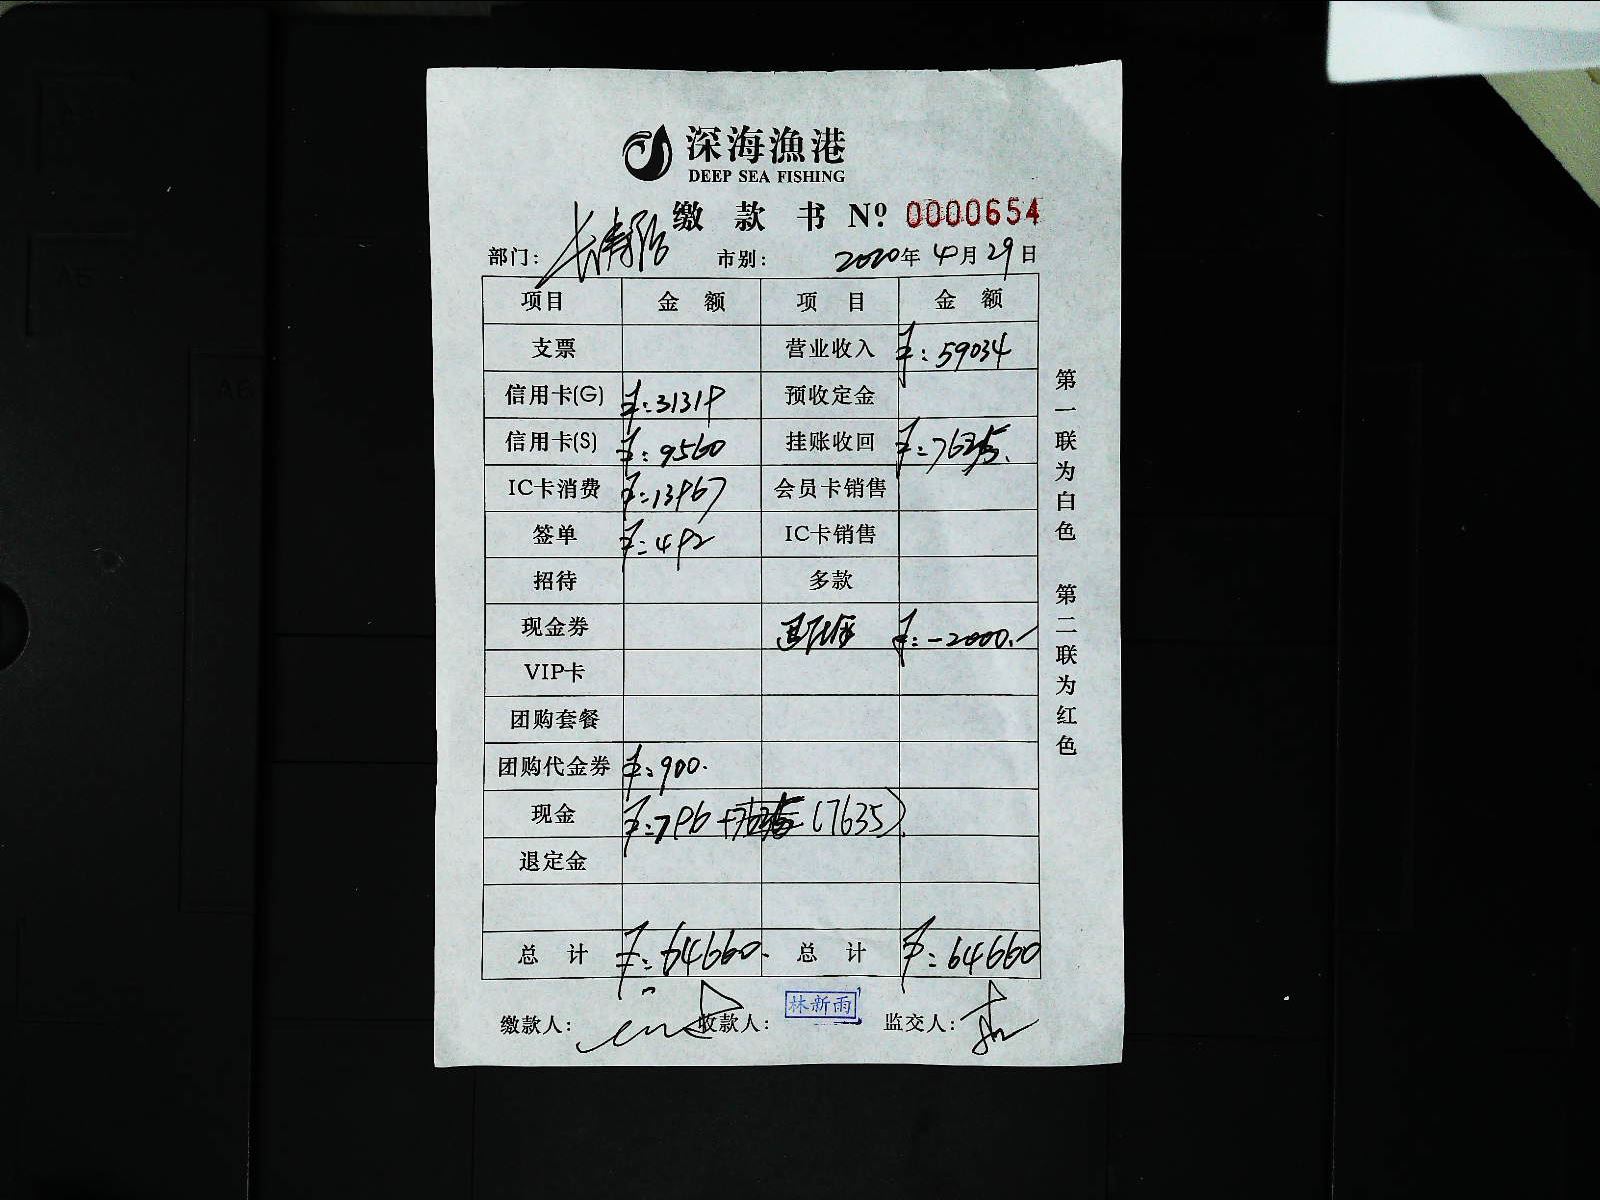 深海漁港
DEEP SEA FISHING
缴款书 Nº 0000654
部门: 市别: 2020年 4月 29日
项目 金额 项目 金额
支票 营业收入 ¥:59034
信用卡(G) 预收定金
信用卡(S) ¥:9560 挂账收回
IC卡消费 会员卡销售
签单 IC卡销售
招待 多款
现金券 ¥:-2000.
VIP卡
团购套餐
团购代金券 ¥:900.
现金 (7635)
退定金
总计 ¥:64660. 总计 ¥:64660
缴款人: 收款人: 林新雨 监交人:
第一联为白色 第二联为红色